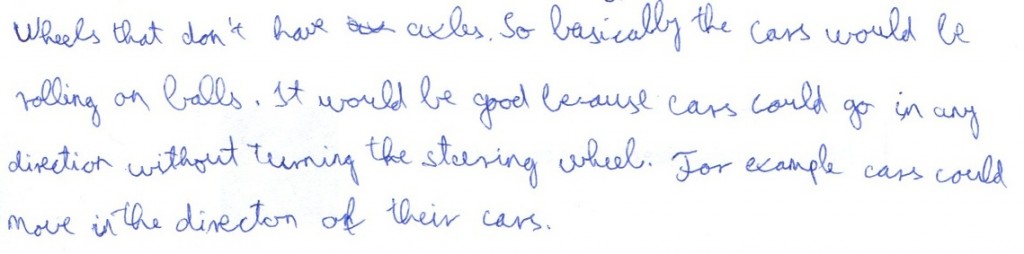 Wheels that don't have axles. So basically the cars would be
rolling on balls. It would be good because cars could go in any
direction without turning the steering wheel. For example cars could
move in the directon of their cars.